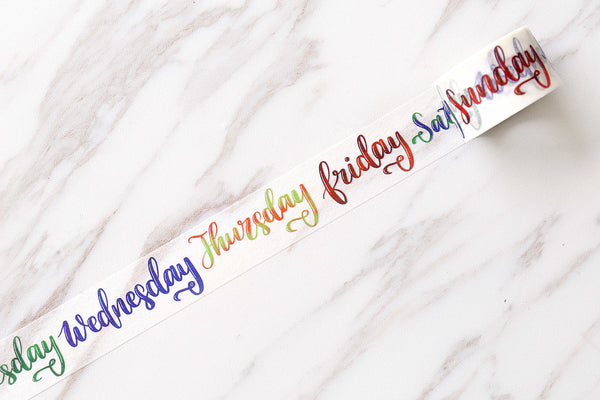 sday Wednesday Thursday friday Sat Sunday